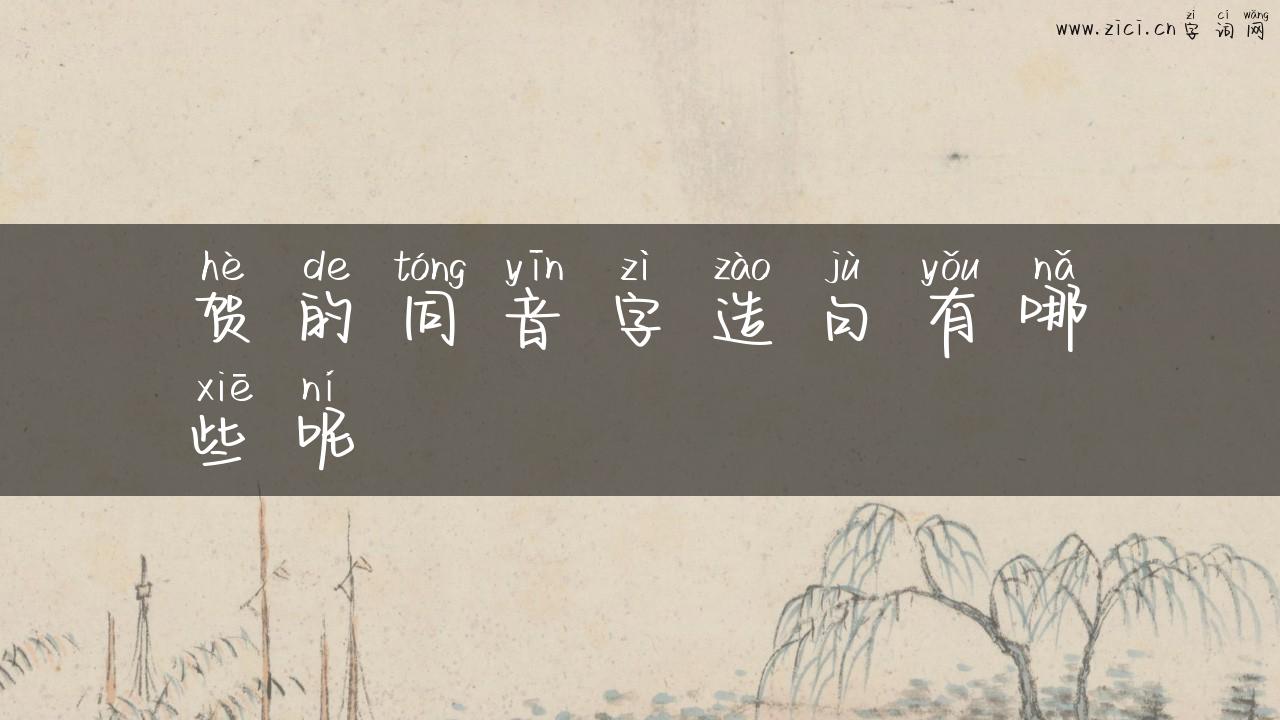 zì cí wǎng
www.zici.cn 字词网
hè de tóng yīn zì zào jù yǒu nǎ
贺的同音字造句有哪
xiē ní
些呢